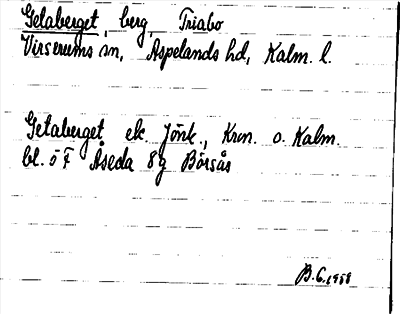 Getaberget, berg, Triabo
Virserums sn, Aspelands hd, Kalm. l.
Getaberget ek Jönk., Kron. o. Kalm.
bl. ö F Åseda 8g Börsås
B.G. 1958